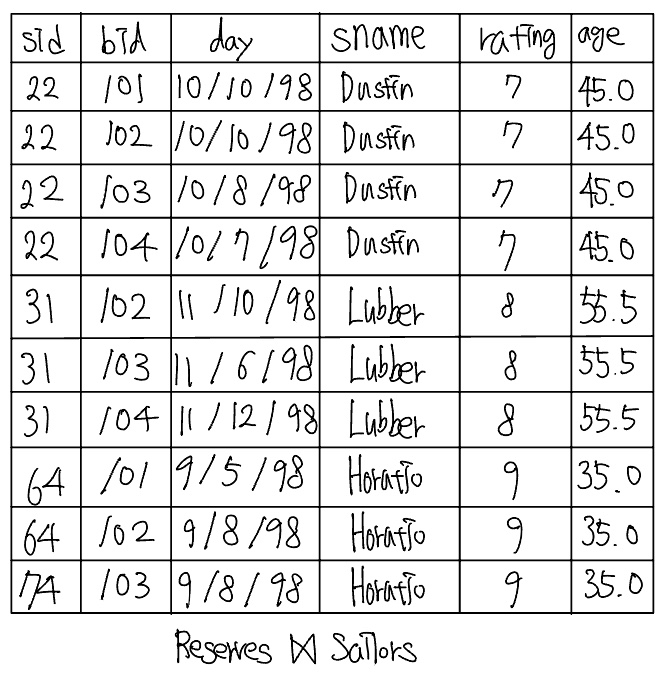 sid bid day sname rating age
22 101 10/10/98 Dustin 7 45.0
22 102 10/10/98 Dustin 7 45.0
22 103 10/8/98 Dustin 7 45.0
22 104 10/7/98 Dustin 7 45.0
31 102 11/10/98 Lubber 8 55.5
31 103 11/6/98 Lubber 8 55.5
31 104 11/12/98 Lubber 8 55.5
64 101 9/5/98 Horatio 9 35.0
64 102 9/8/98 Horatio 9 35.0
74 103 9/8/98 Horatio 9 35.0
Reserves ⋈ Sailors